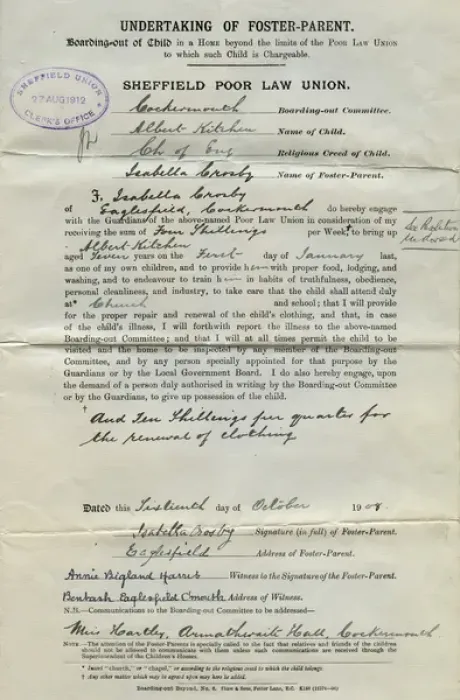 UNDERTAKING OF FOSTER-PARENT.
Boarding-out of Child in a Home beyond the limits of the Poor Law Union
to which such Child is Chargeable.
SHEFFIELD POOR LAW UNION.
SHEFFIELD UNION
27 AUG 1912
CLERK'S OFFICE
Cockermouth Boarding-out Committee.
Albert Kitchen Name of Child.
Ch of Eng Religious Creed of Child.
Isabella Crosby Name of Foster-Parent.
I, Isabella Crosby
of Eaglesfield, Cockermouth do hereby engage
with the Guardians of the above-named Poor Law Union in consideration of my
receiving the sum of Four Shillings per Week,† to bring up
Albert Kitchen
aged Seven years on the First day of January last,
as one of my own children, and to provide h with proper food, lodging, and
washing, and to endeavour to train h in habits of truthfulness, obedience,
personal cleanliness, and industry, to take care that the child shall attend duly
at* Church and school; that I will provide
for the proper repair and renewal of the child's clothing, and that, in case
of the child's illness, I will forthwith report the illness to the above-named
Boarding-out Committee; and that I will at all times permit the child to be
visited and the home to be inspected by any member of the Boarding-out
Committee, and by any person specially appointed for that purpose by the
Guardians or by the Local Government Board. I do also hereby engage, upon
the demand of a person duly authorised in writing by the Boarding-out Committee
or by the Guardians, to give up possession of the child.
† And Ten Shillings per quarter for
the renewal of clothing
Dated this Sixteenth day of October 1908.
Isabella Crosby Signature (in full) of Foster-Parent.
Eaglesfield Address of Foster-Parent.
Annie Bigland Harris Witness to the Signature of the Foster-Parent.
Eaglesfield C'mouth Address of Witness.
N.B.—Communications to the Boarding-out Committee to be addressed—
Miss Hartley, Armathwaite Hall, Cockermouth
Note.—The attention of the Foster-Parents is specially called to the fact that relatives and friends of the children
should not be allowed to communicate with them unless such communications are received through the
Superintendent of the Children's Homes.
* Insert "church," or "chapel," or according to the religious creed to which the child belongs.
† Any other matter which may be agreed upon may here be added.
Boarding-out Beyond, No. 6.